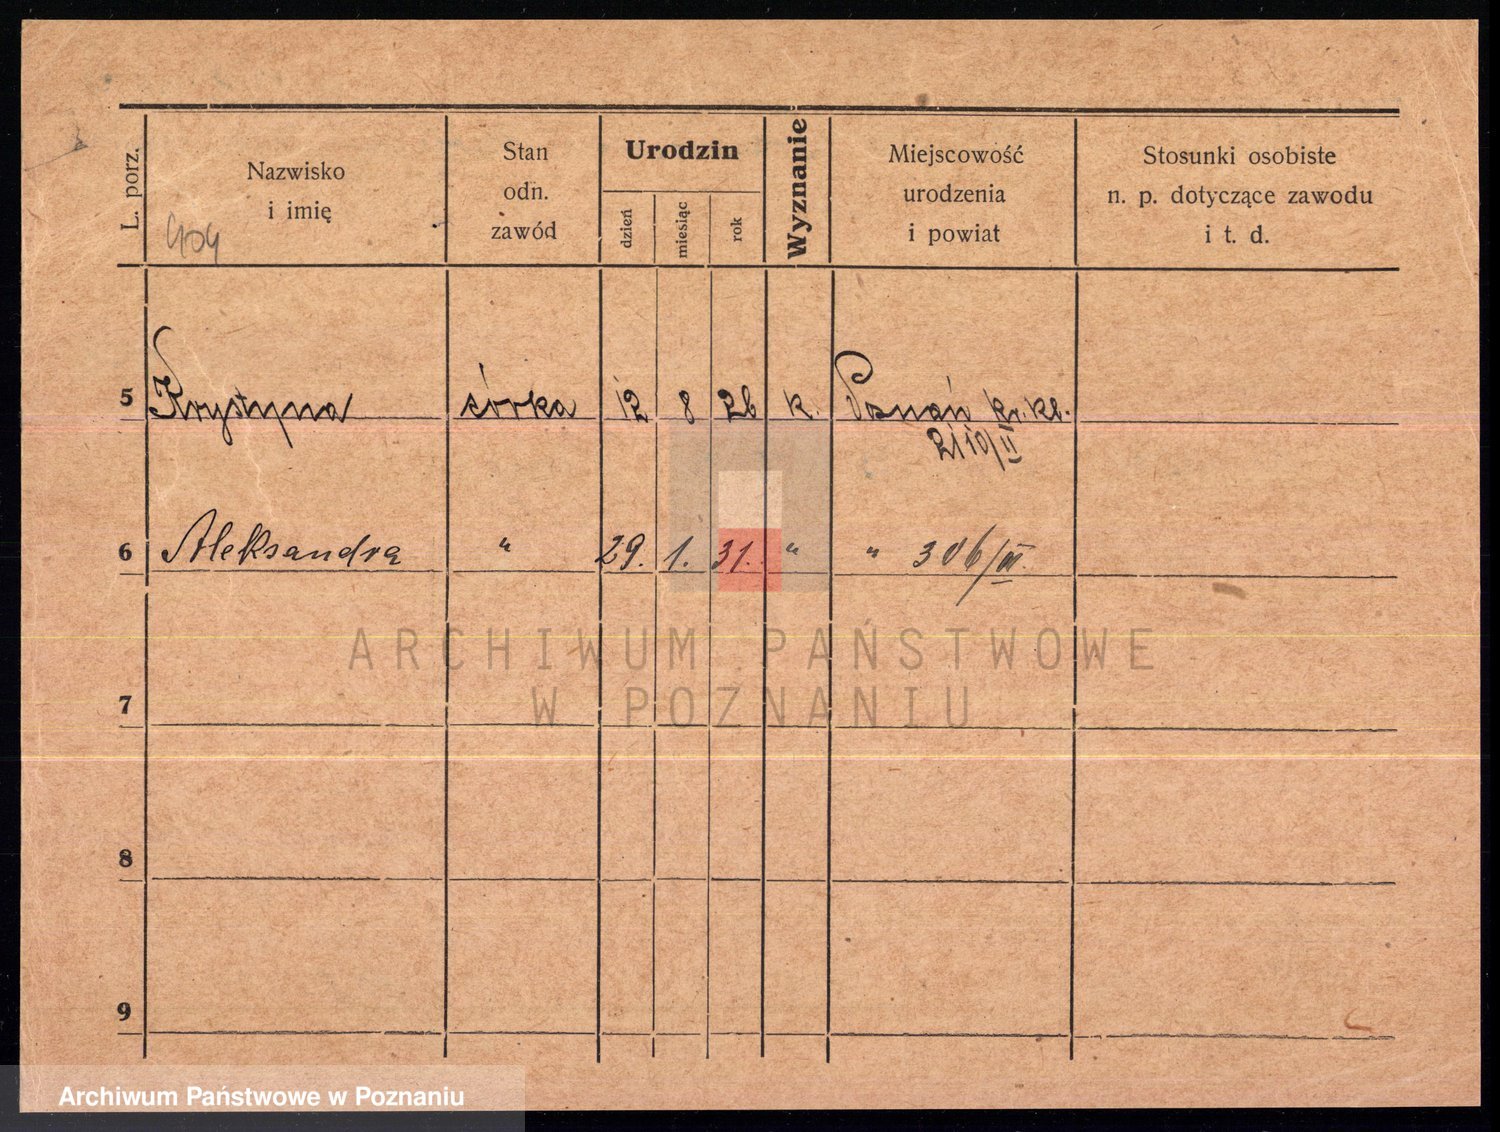 L. porz.
Nazwisko
i imię
Stan
odn.
zawód
Urodzin
dzień
miesiąc
rok
Wyznanie
Miejscowość
urodzenia
i powiat
Stosunki osobiste
n. p. dotyczące zawodu
i t. d.
5 Krystyna córka 12 8 26 k. Poznań
6 Aleksandra " 29. 1. 31. " " 306/III.
7
8
9
ARCHIWUM PAŃSTWOWE
W POZNANIU
Archiwum Państwowe w Poznaniu